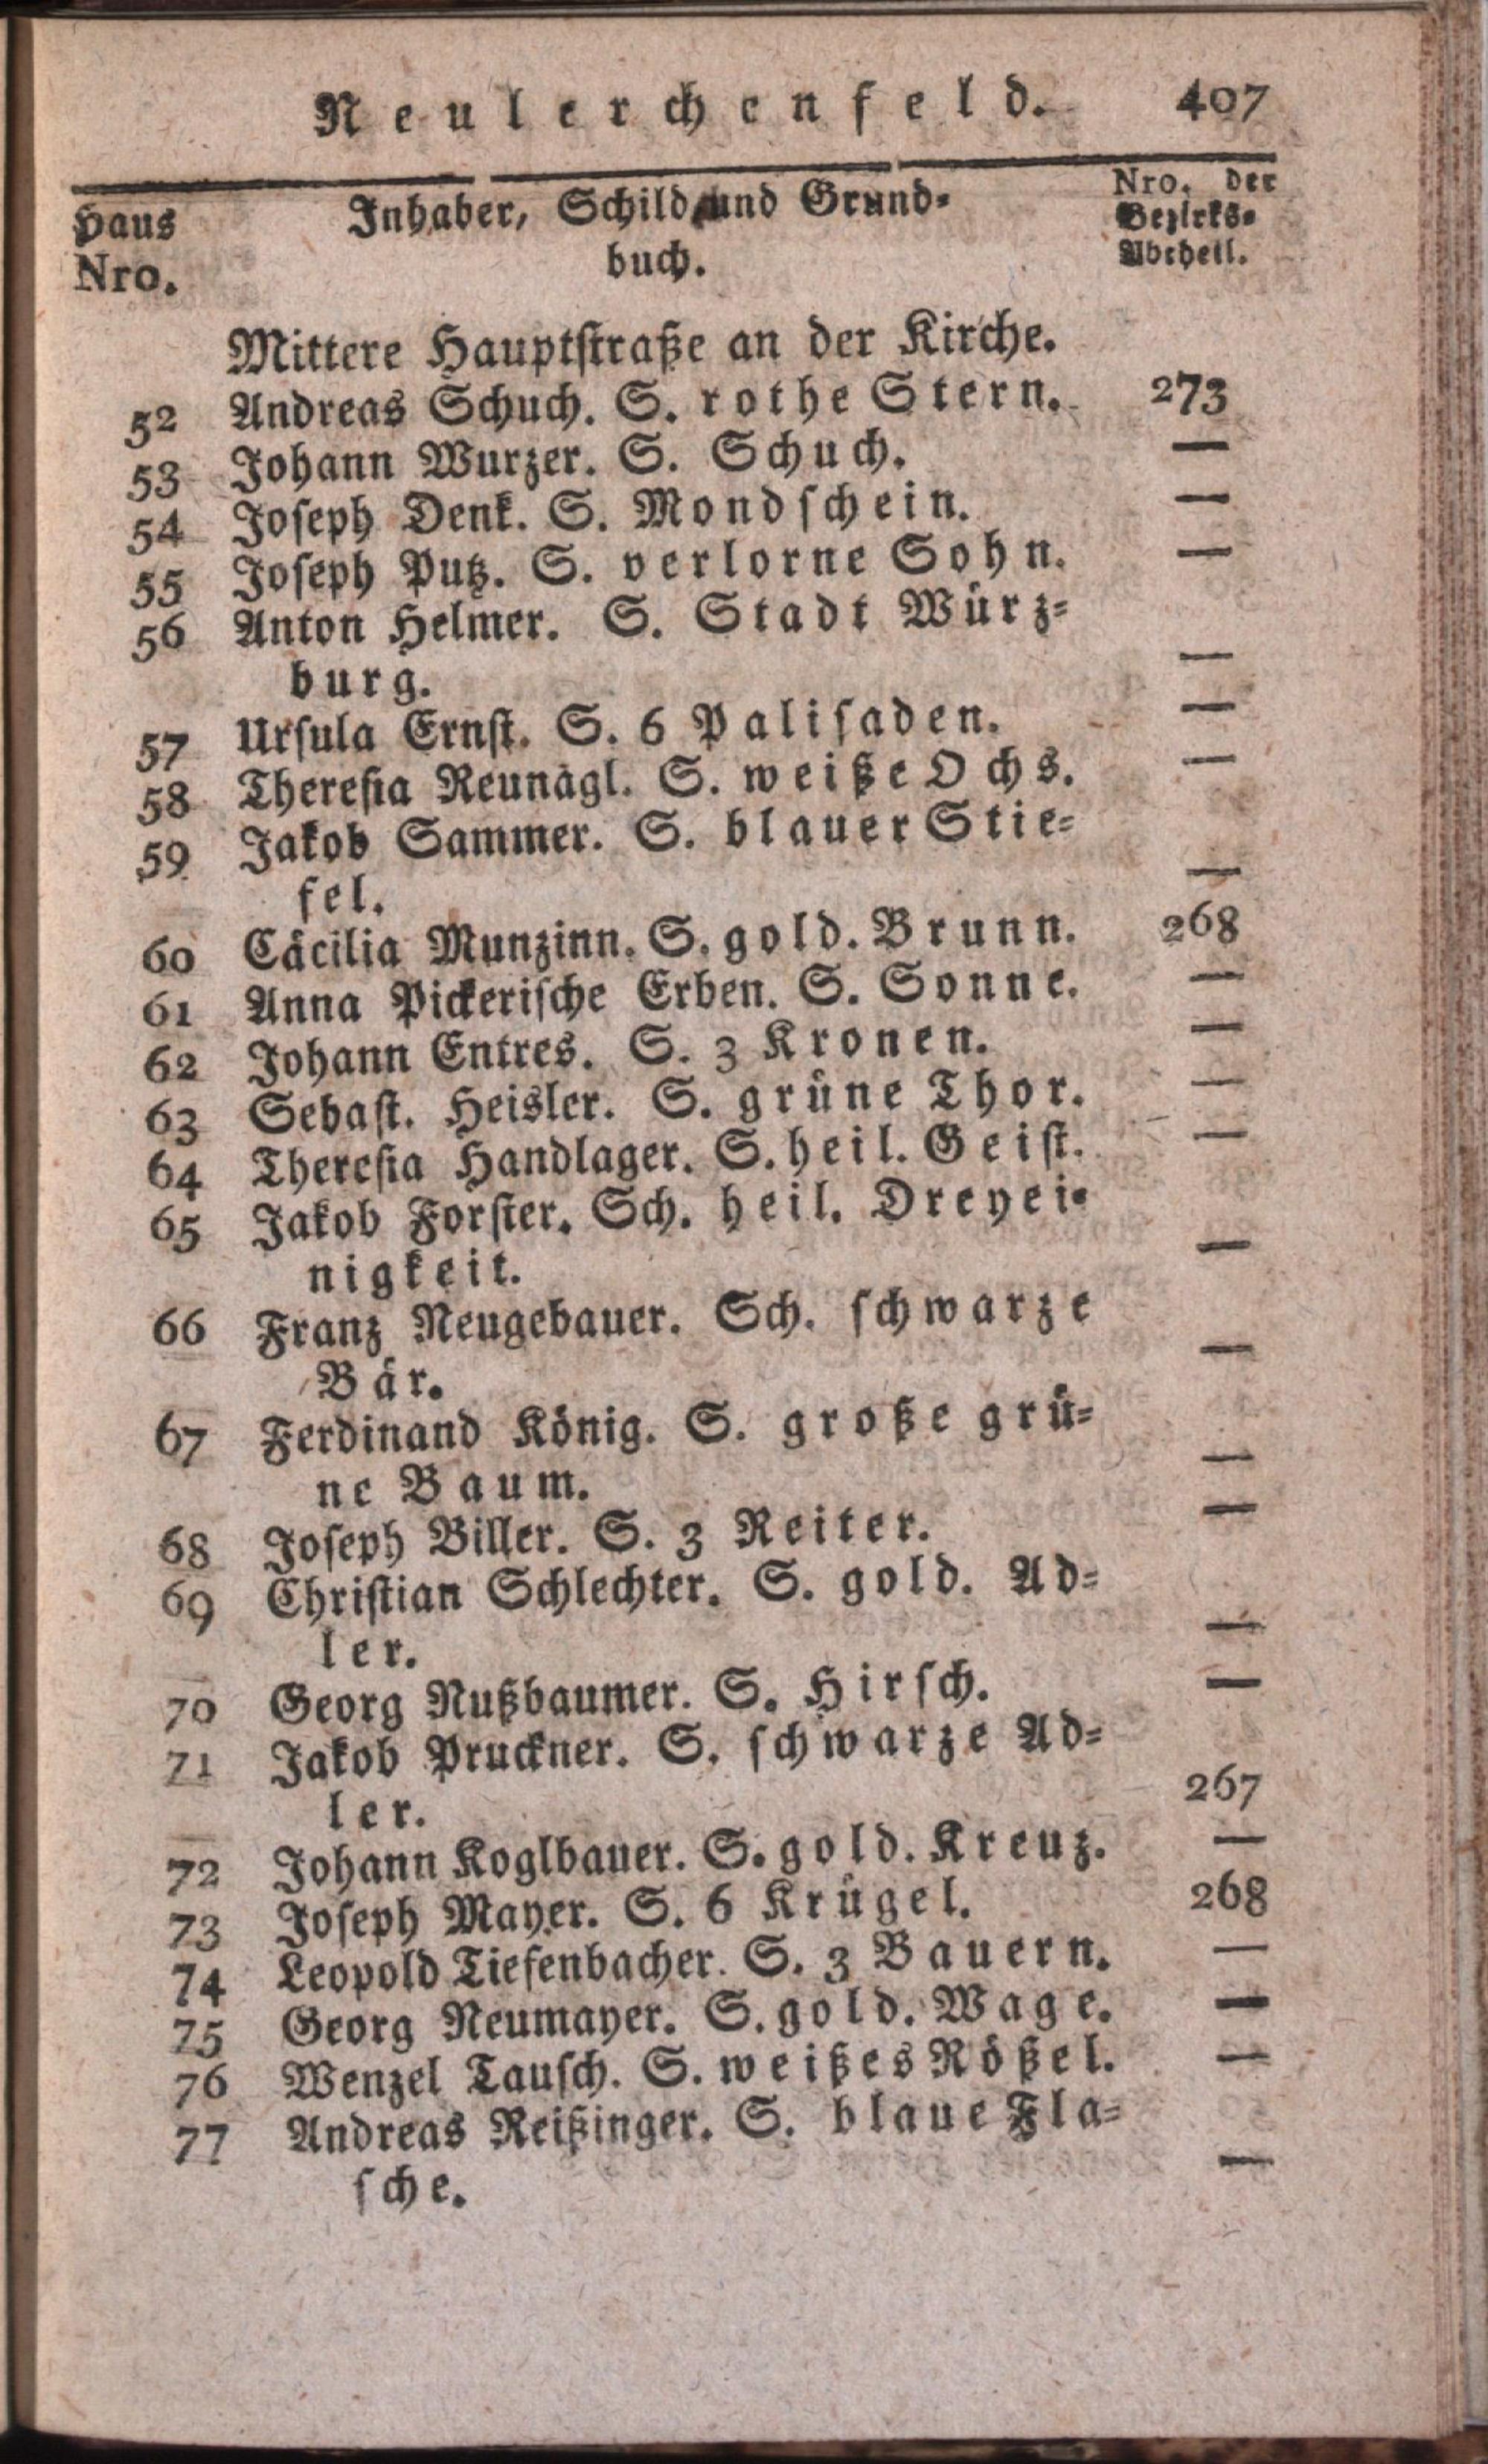 Neulerchenfeld. 407
Haus Nro.
Inhaber, Schild und Grund-
buch.
Nro. der
Bezirks-
Abtheil.
Mittere Hauptstraße an der Kirche.
52 Andreas Schuch. S. rothe Stern. 273
53 Johann Wurzer. S. Schuch. —
54 Joseph Denk. S. Mondschein. —
55 Joseph Putz. S. verlorne Sohn. —
56 Anton Helmer. S. Stadt Würz-
burg. —
57 Ursula Ernst. S. 6 Palisaden. —
58 Theresia Reunägl. S. weiße Ochs. —
59 Jakob Sammer. S. blauer Stie-
fel. —
60 Cäcilia Munzinn. S. gold. Brunn. 268
61 Anna Pickerische Erben. S. Sonne. —
62 Johann Entres. S. 3 Kronen. —
63 Sebast. Heisler. S. grüne Thor. —
64 Theresia Handlager. S. heil. Geist. —
65 Jakob Forster. Sch. heil. Dreyei-
nigkeit. —
66 Franz Neugebauer. Sch. schwarze
Bär. —
67 Ferdinand König. S. große grü-
ne Baum. —
68 Joseph Biller. S. 3 Reiter. —
69 Christian Schlechter. S. gold. Ad-
ler. —
70 Georg Nußbaumer. S. Hirsch. —
71 Jakob Pruckner. S. schwarze Ad-
ler. 267
72 Johann Koglbauer. S. gold. Kreuz. —
73 Joseph Mayer. S. 6 Krügel. 268
74 Leopold Tiefenbacher. S. 3 Bauern. —
75 Georg Neumayer. S. gold. Wage. —
76 Wenzel Tausch. S. weißes Rößel. —
77 Andreas Reißinger. S. blaue Fla-
sche. —